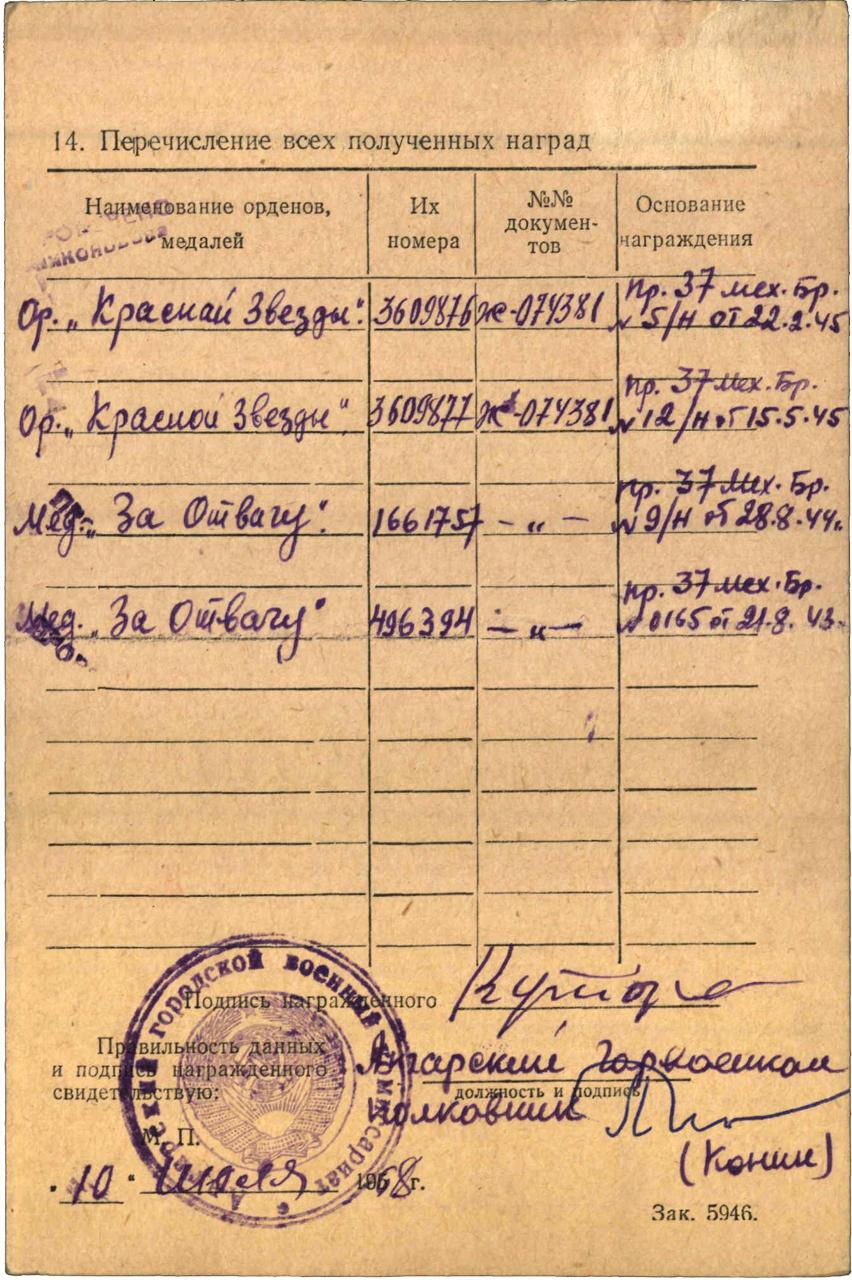 14. Перечисление всех полученных наград
Наименование орденов, медалей
Их номера
№№ документов
Основание награждения
Ор. „Красной Звезды“. 3609876 Ж-074381 пр. 37 мех. Бр. № 5/н от 22.2.45
Ор. „Красной Звезды“. 3609877 Ж-074381 пр. 37 мех. Бр. № 12/н от 15.5.45
Мед. „За Отвагу“. 1661757 — „ — пр. 37 мех. Бр. № 9/н от 28.8.44
Мед. „За Отвагу“ 496394 — „ — пр. 37 мех. Бр. № 0165 от 21.8.43
Подпись награжденного
Правильность данных
и подпись награжденного
свидетельствую:
Ангарский горвоенком
должность и подпись
полковник
(Конин)
М. П.
городской военный комиссариат
„10“ июля 1968г.
Зак. 5946.